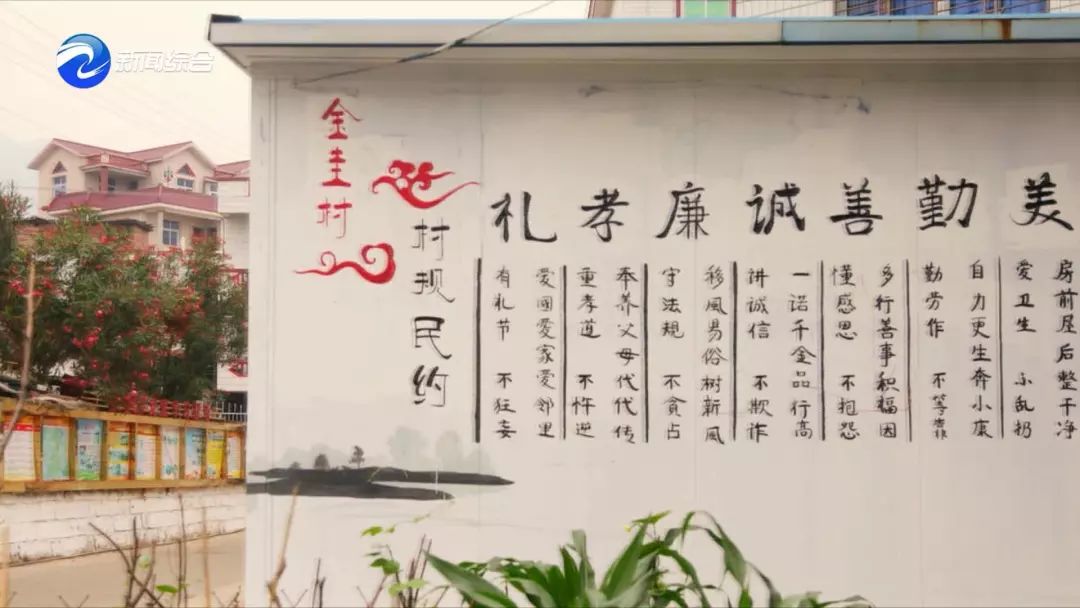 新闻综合
金圭村
村规民约
礼 孝 廉 诚 善 勤 美
有礼节 不狂妄
爱國爱家爱邻里
重孝道 不忤逆
奉养父母代代传
守法规 不贪占
移風易俗树新風
讲诚信 不欺诈
一诺千金品行高
懂感恩 不抱怨
多行善事积福因
勤劳作 不等靠
自力更生奔小康
爱卫生 小乱扔
房前屋后整干净